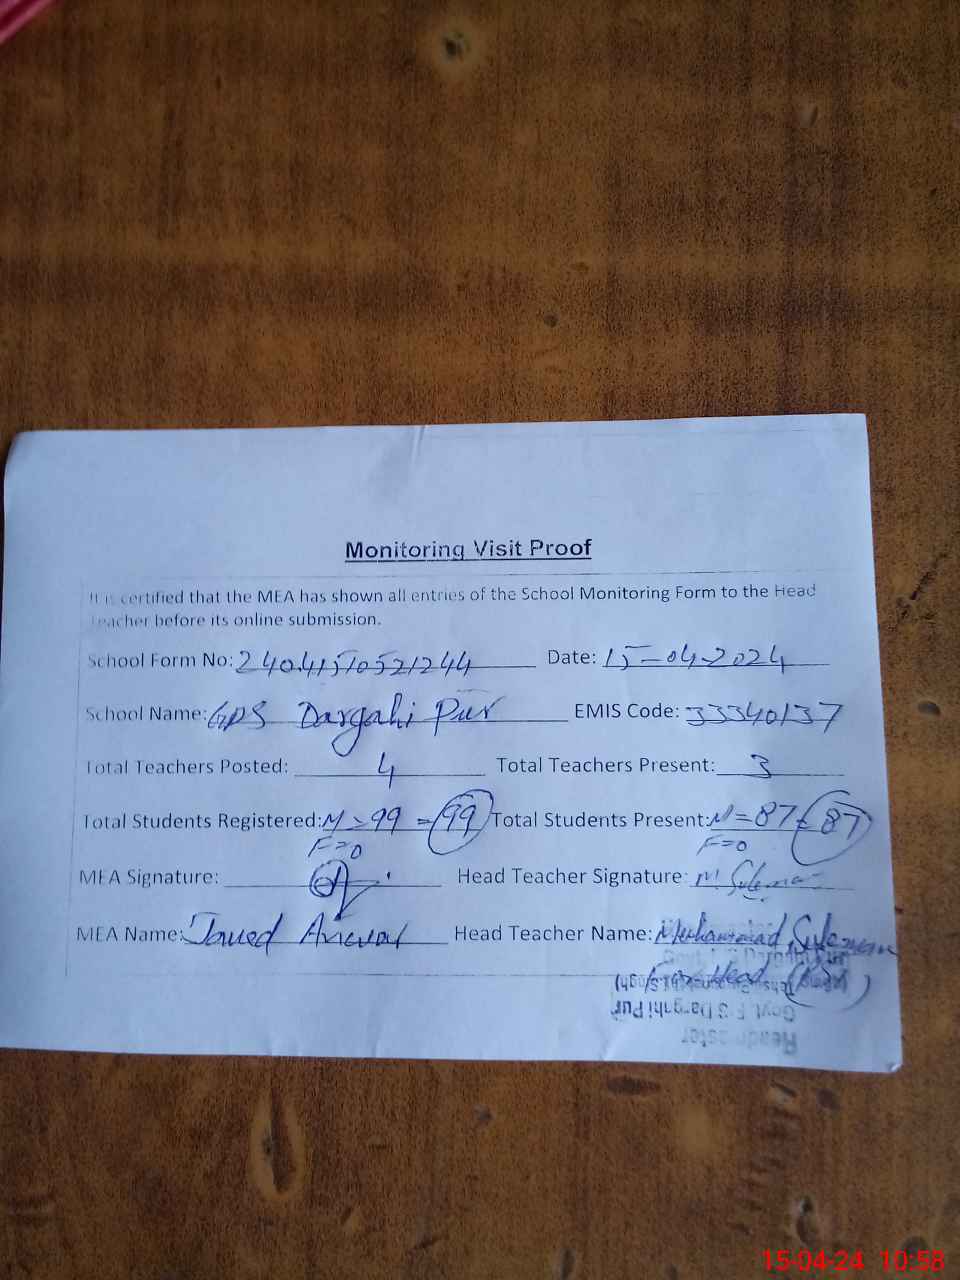 Monitoring Visit Proof
It is certified that the MEA has shown all entries of the School Monitoring Form to the Head
Teacher before its online submission.
School Form No: 24041510521244 Date: 15-04-2024
School Name: GPS Dargahi Pur EMIS Code: 33340137
Total Teachers Posted: 4 Total Teachers Present: 3
Total Students Registered: M=99 = 99 Total Students Present: M=87 = 87
F=0 F=0
MEA Signature: Head Teacher Signature: M Suleman
MEA Name: Javed Anwar Head Teacher Name: Muhammad Suleman
For Head
Govt. P/S Darghi Pur
Headmaster
15-04-24 10:58